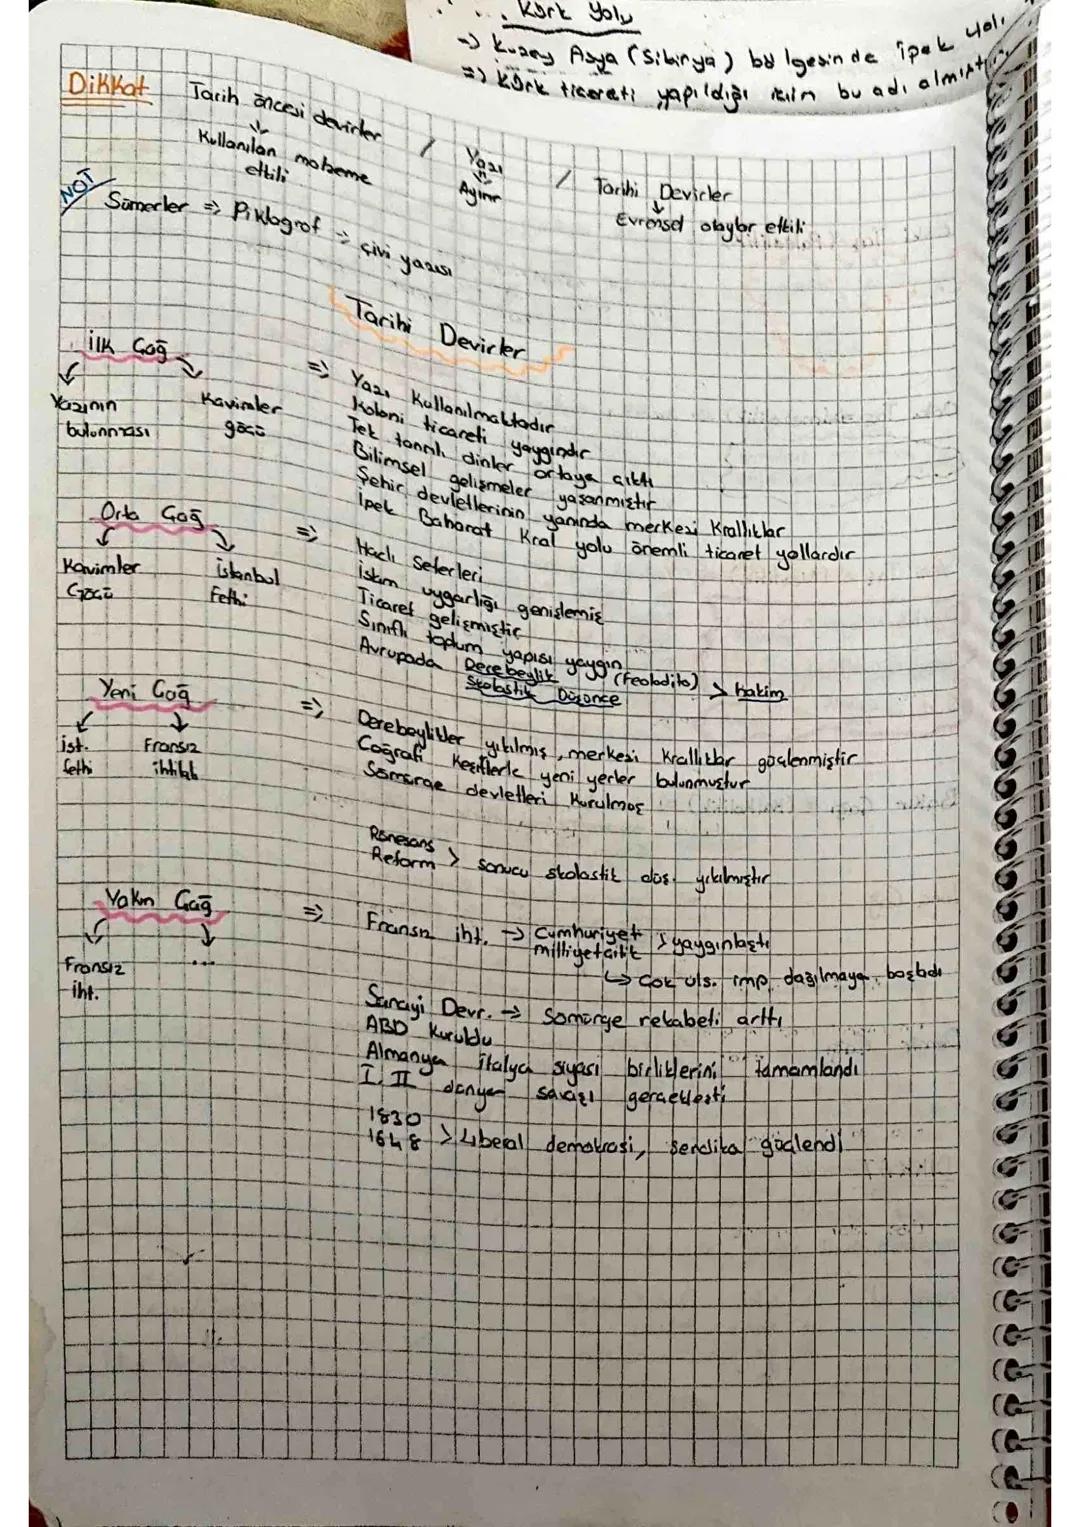 Kürk Yolu
-> Kuzey Asya (Sibirya) bölgesinde ipek yolu
=> Kürk ticareti yapıldığı için bu adı almıştır
Dikkat
Tarih öncesi devirler / Yazı / Tarihi Devirler
Kullanılan malzeme etkili
Ayırır
Evrensel olaylar etkili
NOT
Sümerler => Piktograf -> çivi yazısı
Tarihi Devirler
İlk Çağ
Yazının bulunması
Kavimler göçü
=> Yazı Kullanılmaktadır
Koloni ticareti yaygındır
Tek tanrılı dinler ortaya çıktı
Bilimsel gelişmeler yaşanmıştır
Şehir devletlerinin yanında merkezi Krallıklar
İpek Baharat Kral yolu önemli ticaret yollardır
Orta Çağ
Kavimler Göçü
İstanbul Fethi
=> Haçlı Seferleri
İslam uygarlığı genişlemiş
Ticaret gelişmiştir
Sınıflı toplum yapısı yaygın
Avrupada Derebeylik (Feodalite) > hakim
Skolastik Düşünce
Yeni Çağ
ist. fethi
Fransız ihtilali
=> Derebeylikler yıkılmış, merkezi Krallıklar güçlenmiştir
Coğrafi Keşiflerle yeni yerler bulunmuştur
Sömürge devletleri Kurulmuş
Rönesans
Reform > sonucu skolastik düş. yıkılmıştır
Yakın Çağ
Fransız iht.
...
=> Fransız iht. -> Cumhuriyet
milliyetçilik > yaygınlaştı
↳ Çok uls. imp. dağılmaya başladı
Sanayi Devr. -> Sömürge rekabeti arttı
ABD Kuruldu
Almanya İtalya siyasi birliklerini tamamlandı
I. II dünya savaşı gerçekleşti
1830
1648 > Liberal demokrasi, sendika güçlendi